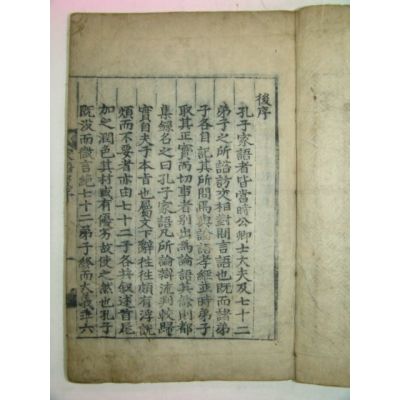 後序
孔子家語者皆當時公卿士大夫及七十二
弟子之所諮訪交相對問言語也既而諸弟
子各自記其所問焉與論語孝經並時弟子
取其正實而切事者別出爲論語其餘則都
集錄名之曰孔子家語凡所論辯流判較歸
實自夫子本旨也屬文下辭往往頗有浮說
煩而不要者亦由七十二子各共叙述首尾
加之潤色其材或有優劣故使之然也孔子
既沒而微言絶七十二弟子終而大義乖六